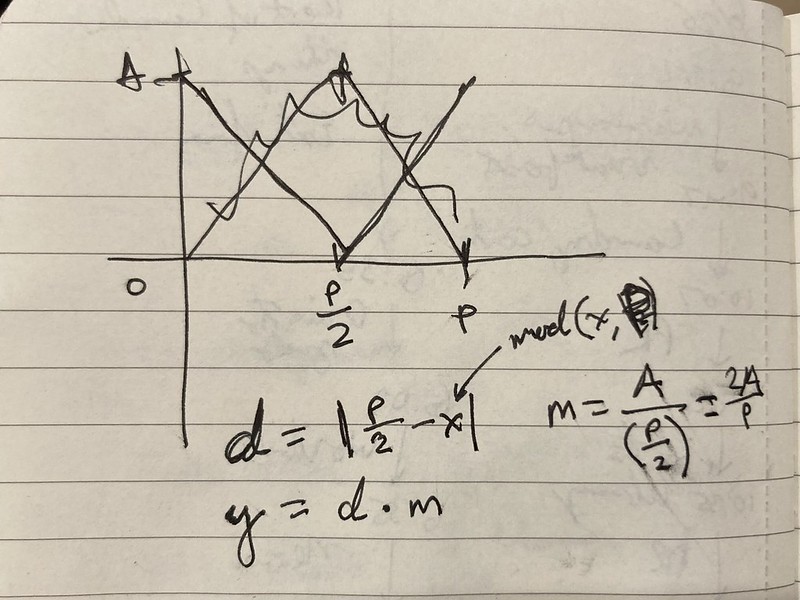 A
0
P/2
P
mod(x, P)
d = |P/2 - x|
m = A/(P/2) = 2A/P
y = d · m